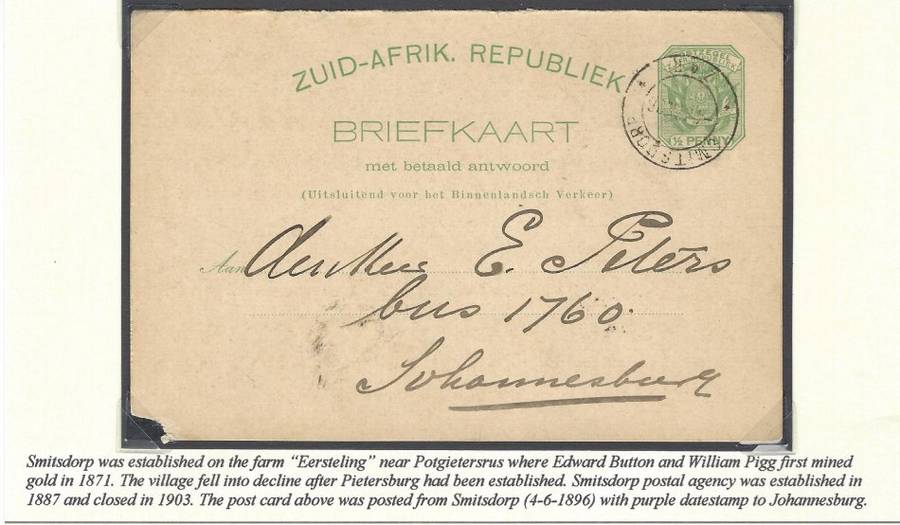 ZUID-AFRIK. REPUBLIEK
BRIEFKAART
met betaald antwoord
(Uitsluitend voor het Binnenlandsch Verkeer)
½ PENNY
Aan
E. Peters
bus 1760.
Johannesburg
Smitsdorp was established on the farm "Eersteling" near Potgietersrus where Edward Button and William Pigg first mined
gold in 1871. The village fell into decline after Pietersburg had been established. Smitsdorp postal agency was established in
1887 and closed in 1903. The post card above was posted from Smitsdorp (4-6-1896) with purple datestamp to Johannesburg.